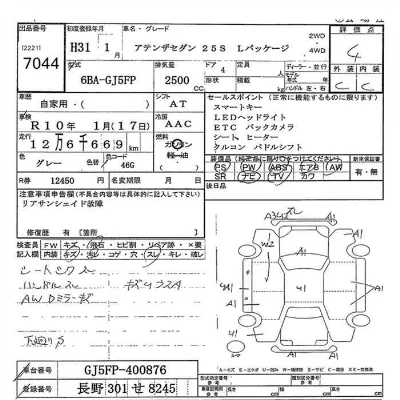 出品番号 初度登録年月 車名・グレード 評価点
[2221] H31 1月 アテンザセダン 25S Lパッケージ 2WD 4WD 4
7044 型式 排気量 ドア 4 定員 ディーラー・並行 外装 内装
6BA-GJ5FP 2500 cc 人 モデル年式 ハンドル 左・右 C C
車歴 自家用・( ) シフト AT セールスポイント(正常に機能するものに限ります)
車検 R10年1月(17日) 冷房 AAC スマートキー
LEDヘッドライト
走行 12万6千669km 燃料 ガソリン 軽油 ETC バックカメラ
シートヒーター
色 グレー カラーNo. 46G クルコン パドルシフト
PS PW ABS エアB AW 新車保証書
R券 12450 名変期限 月 日 SR ナビ TV カワ 有・無
注意事項申告欄(不具合内容等は具体的に記入して下さい) 後日品
リアサンシェイド故障
修復歴 有( )[箇所 ]
検査員 FW キズ・飛石・ヒビ割・リペア跡・×要
記入欄 内装 キズ・汚レ・コゲ・穴・スレ・キレ・破レ
ハンドルスレ
AWDミラーキズ
下廻りS
車台番号 GJ5FP-400876
登録番号 長野 301 せ 8245
A3 A1 W2 4A1 41 A1 A1 A1 A1 41